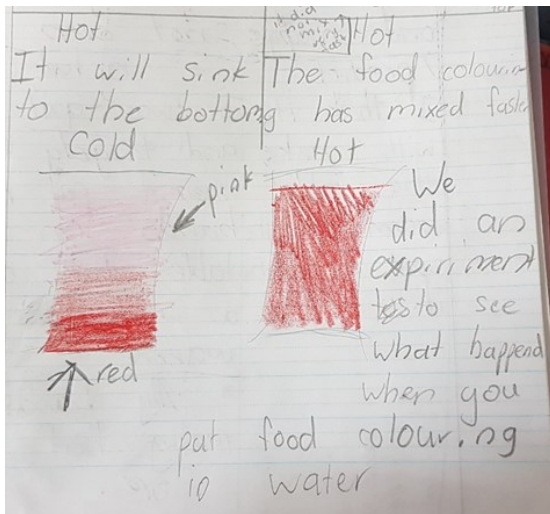 Hot
It will sink
to the bottom
it did
not
mix
very
fast
Hot
The food colouring
has mixed faste
Cold
pink
red
Hot
We
did an
expiriment
to see
what happend
when you
put food colouring
in water